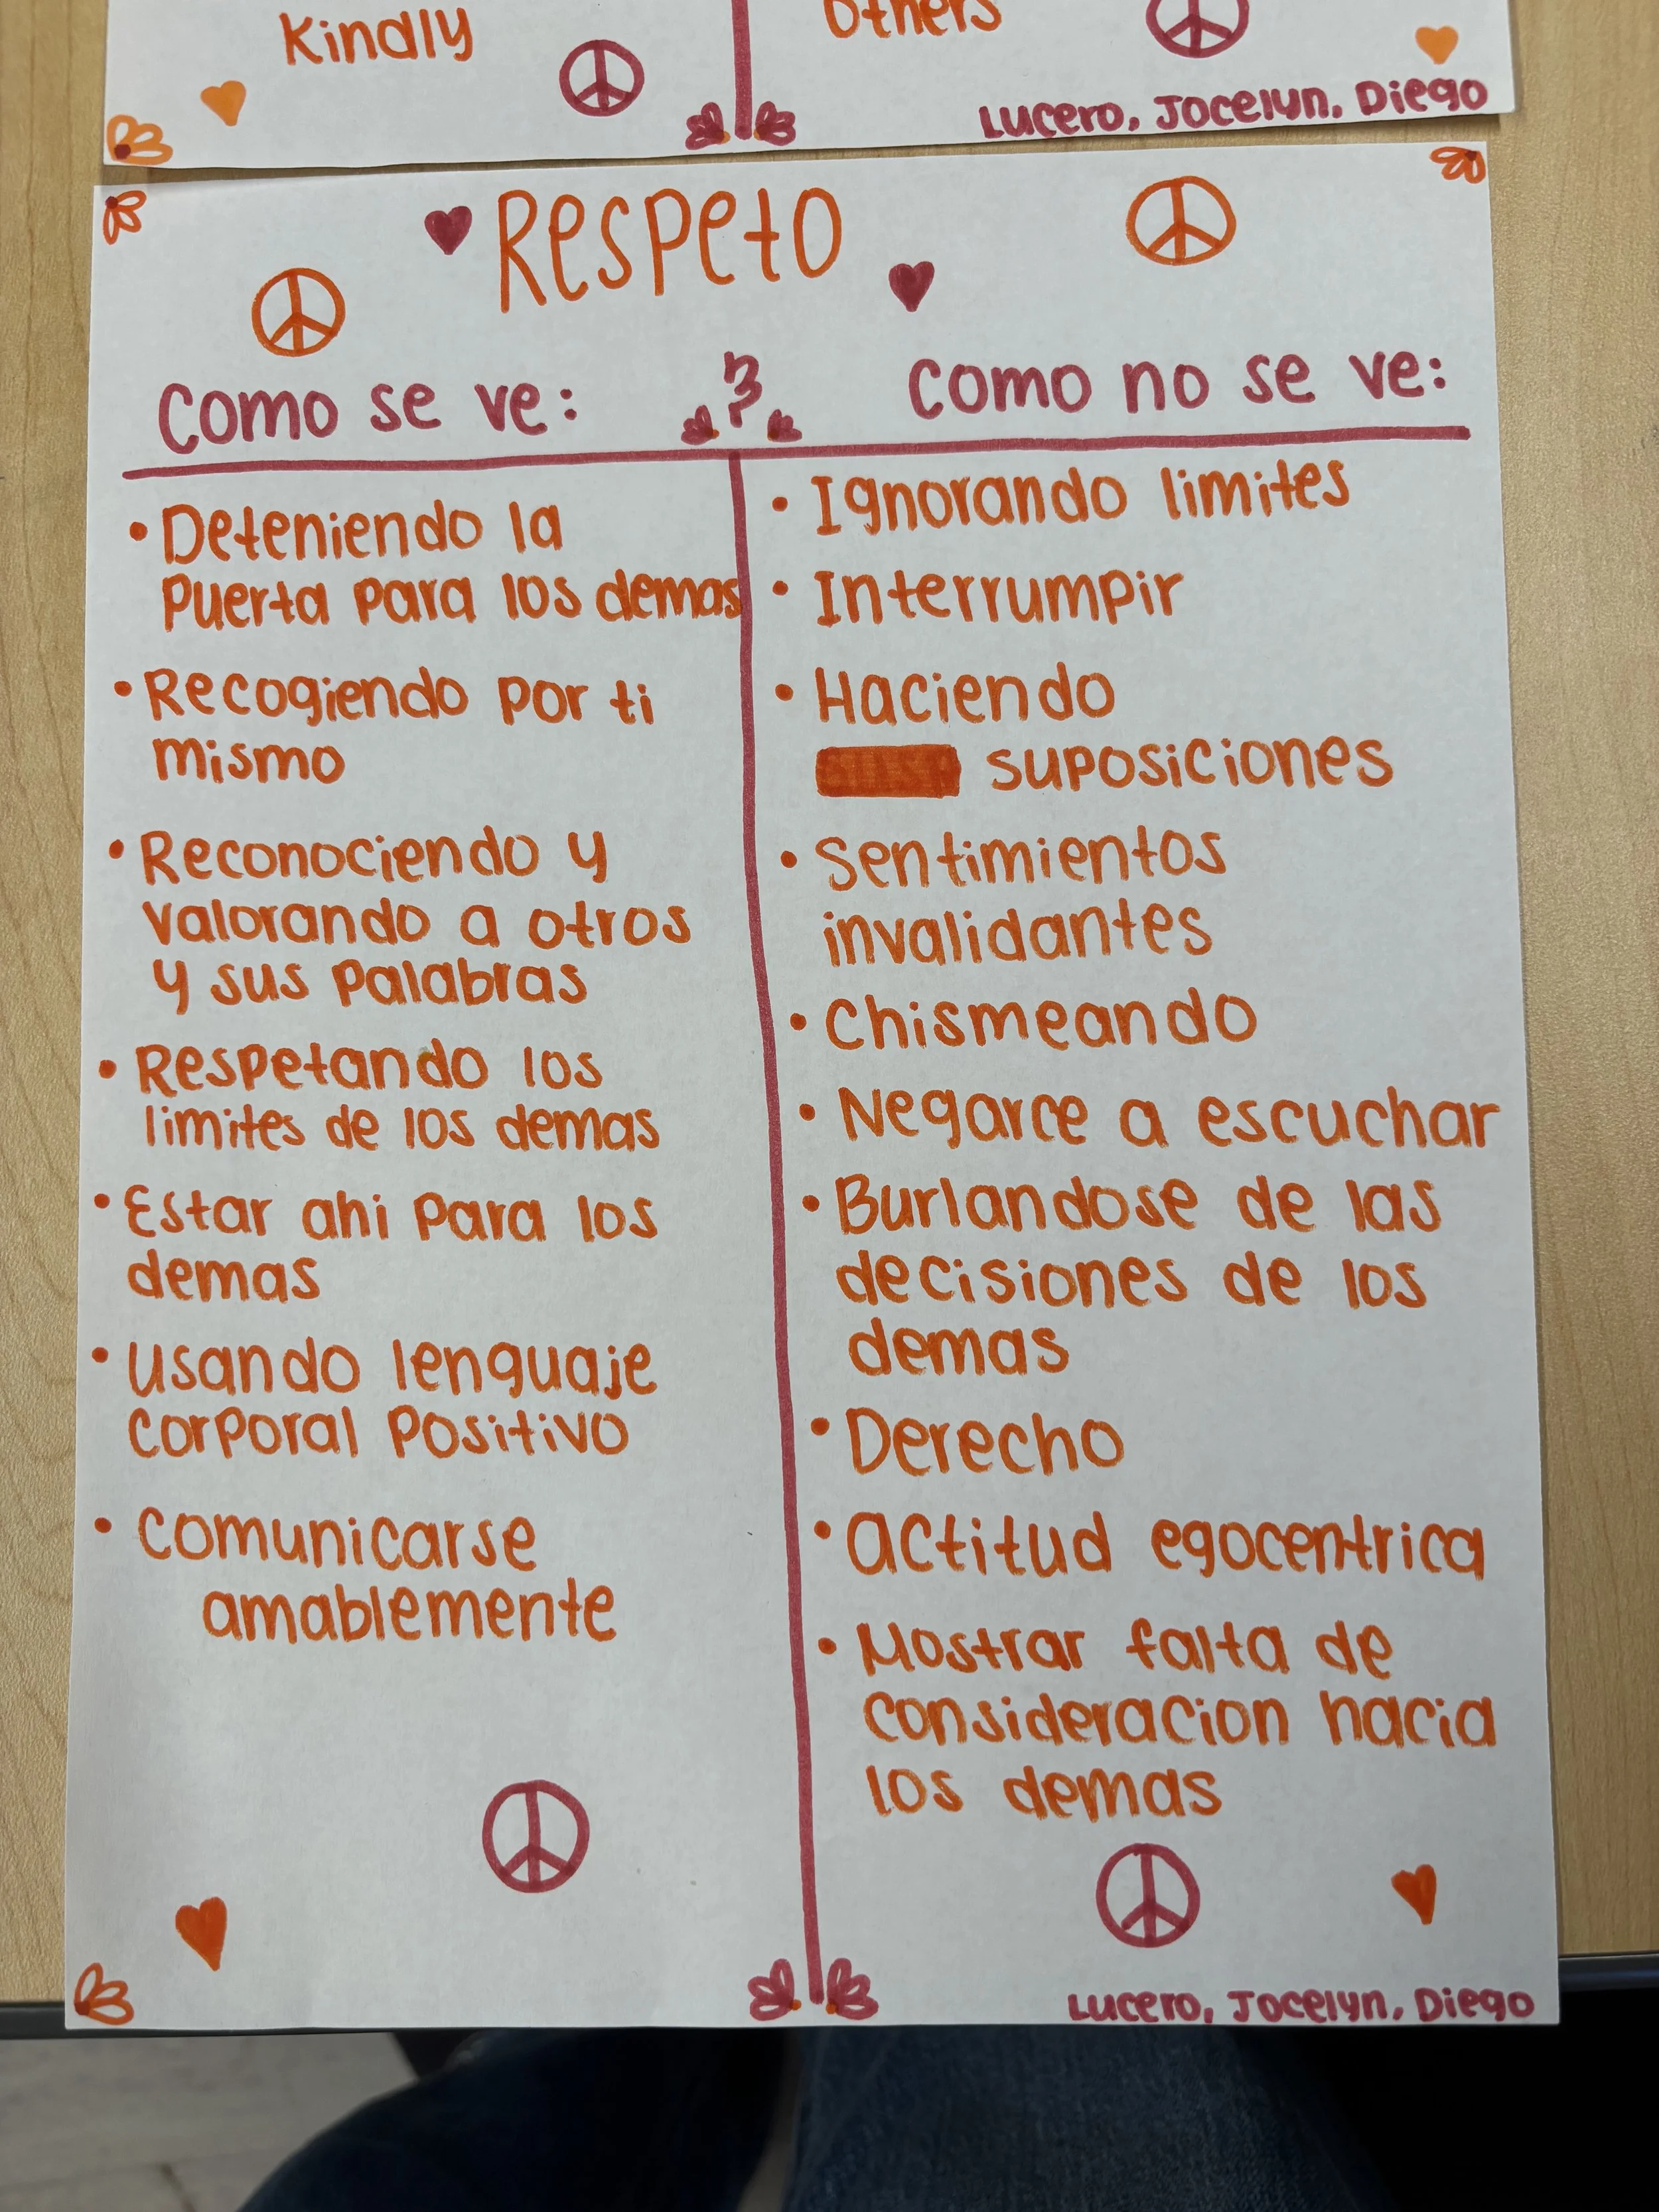 Kindly
Others
Lucero, Jocelyn, Diego
Respeto
Como se ve:
?
Como no se ve:
• Deteniendo la
Puerta para los demas
• Recogiendo por ti
mismo
• Reconociendo y
valorando a otros
y sus palabras
• Respetando los
limites de los demas
• Estar ahi para los
demas
• Usando lenguaje
corporal positivo
• Comunicarse
amablemente
• Ignorando limites
• Interrumpir
• Haciendo
suposiciones
• Sentimientos
invalidantes
• Chismeando
• Negarce a escuchar
• Burlandose de las
decisiones de los
demas
• Derecho
• actitud egocentrica
• Mostrar falta de
consideracion hacia
los demas
Lucero, Jocelyn, Diego